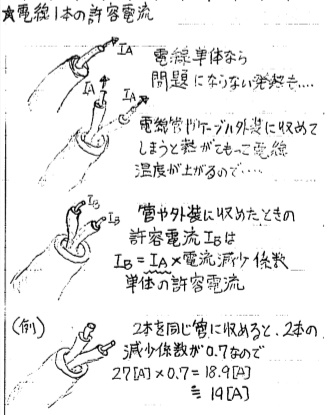 ★電線1本の許容電流
IA
電線単体なら
問題にならない発熱も....
IA
IA
電線管やケーブル外装に収めて
しまうと熱がこもって電線
温度が上がるので....
IB
IB
管や外装に収めたときの
許容電流IBは
IB = IA × 電流減少係数
単体の許容電流
(例)
2本を同じ管に収めると、2本の
減少係数が0.7なので
27[A]×0.7=18.9[A]
≒19[A]